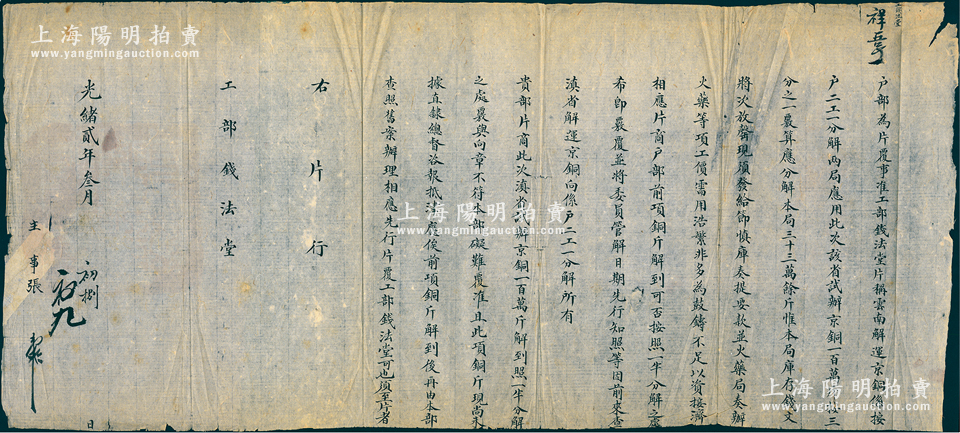 户部為片覆事准工部錢法堂片稱雲南解運京銅係按
户二工一分解两局應用此次該省試辦京銅一百萬
分之一覈算應分解本局三十三萬餘斤惟本局庫存錢文
將次放罄現須發給節慎庫奏提要款並火藥局奏辦
火藥等項工價需用浩繁非多為鼓鑄不足以資接濟
相應片商户部前項銅斤解到可否按照一半分解之處
希即覈覆並將委員管解日期先行知照等因前來查
滇省解運京銅向係户二工一分解所有
貴部片商此次滇省試辦京銅一百萬斤解到照一半分解
之處覈與向章不符本部礙難覆准且此項銅斤現尚未
據直隸總督咨報抵津應俟前項銅斤解到後再由本部
查照舊案辦理相應先行片覆工部錢法堂可也須至片者
右片行
工部錢法堂
光緒貳年叁月
初捌
初九
日
主事張
上海陽明拍賣
www.yangmingauction.com
上海陽明拍賣
www.yangmingauction.com
上海陽明拍賣
www.yangmingauction.com
上海陽明拍賣
www.yangmingauction.com
上海陽明拍賣
www.yangmingauction.com